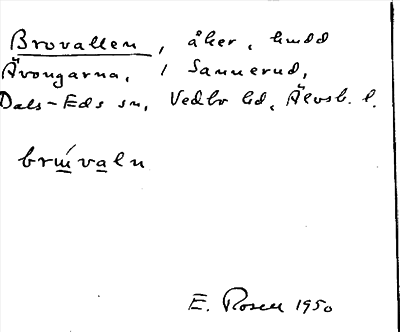 Brovallen, åker, hmdd
Ävongarna, i Sannerud,
Dals-Eds sn, Vedbo hd, Älvsb. l.
brúvaln
E. Rosell 1950